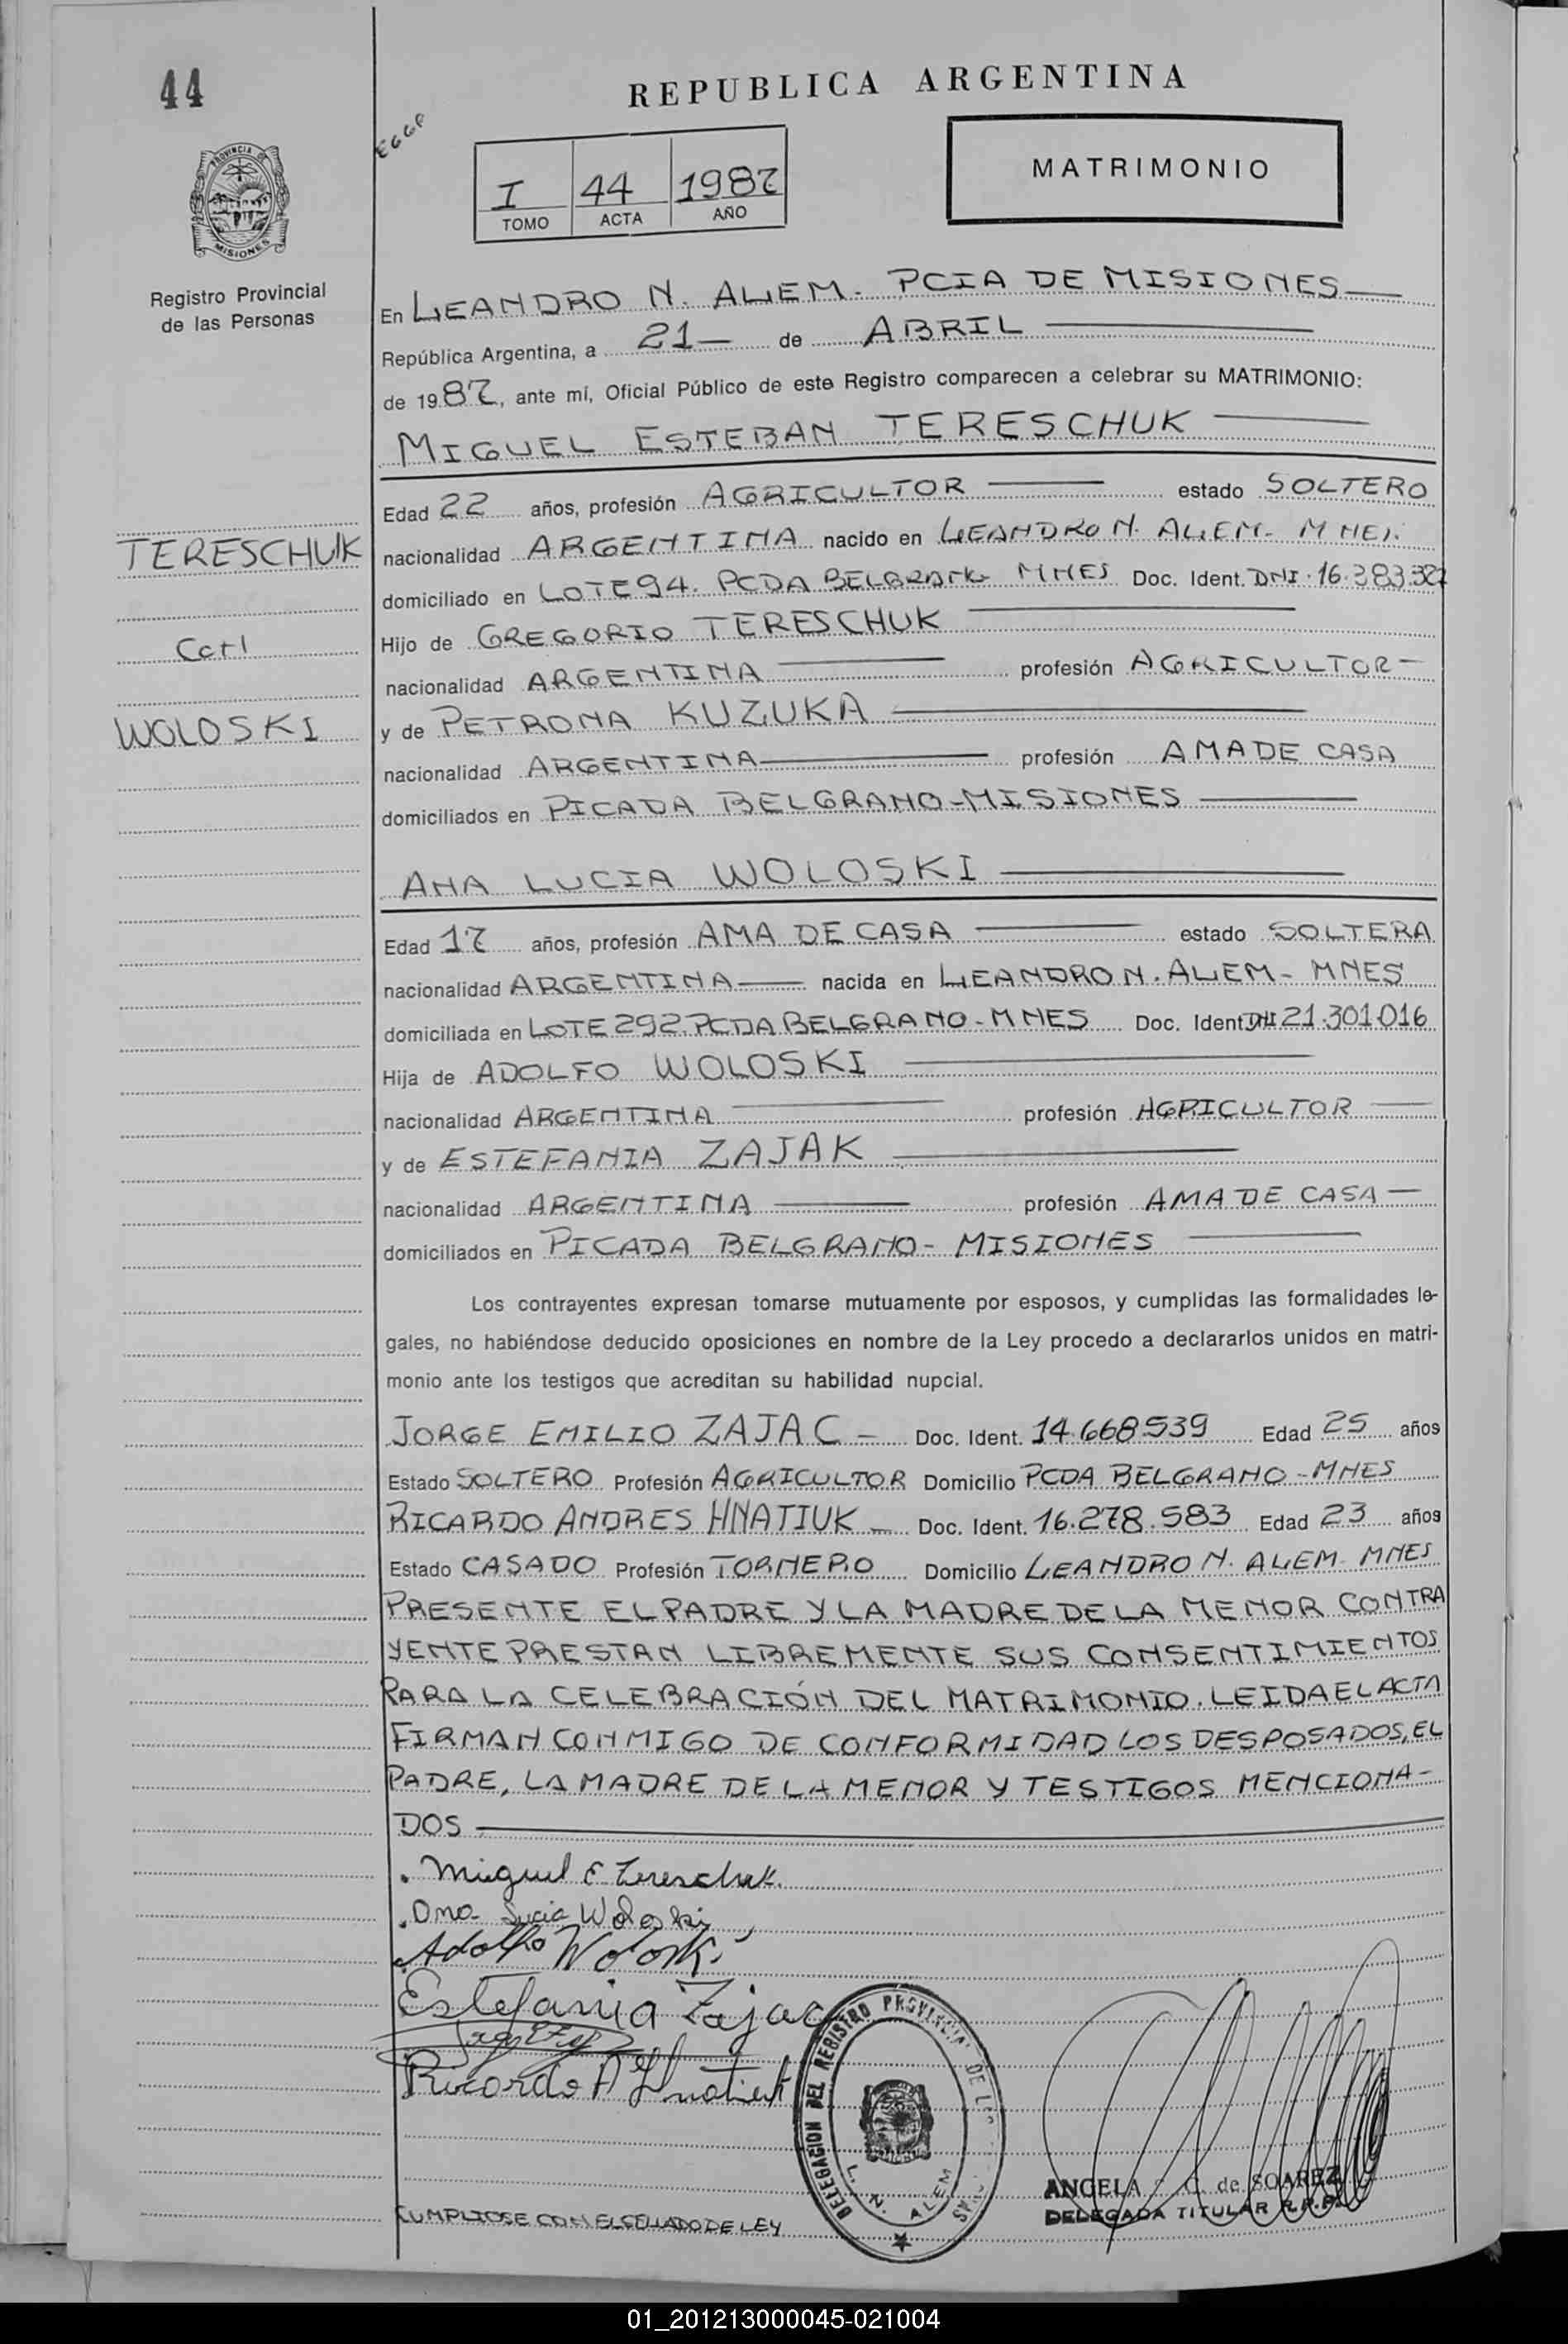 44
REPUBLICA ARGENTINA
PROVINCIA DE
MISIONES
I 44 1987
TOMO ACTA AÑO
MATRIMONIO
Registro Provincial
de las Personas
En LEANDRO N. ALEM. PCIA DE MISIONES
República Argentina, a 21 de ABRIL
de 1987, ante mí, Oficial Público de este Registro comparecen a celebrar su MATRIMONIO:
MIGUEL ESTEBAN TERESCHUK
Edad 22 años, profesión AGRICULTOR estado SOLTERO
TERESCHUK
nacionalidad ARGENTINA nacido en LEANDRO N. ALEM- MNES.
domiciliado en LOTE 94. PCDA BELGRANO MNES Doc. Ident. DNI. 16.383.387
Hijo de GREGORIO TERESCHUK
con
nacionalidad ARGENTINA profesión AGRICULTOR
WOLOSKI
y de PETRONA KUZUKA
nacionalidad ARGENTINA profesión AMA DE CASA
domiciliados en PICADA BELGRANO-MISIONES
ANA LUCIA WOLOSKI
Edad 17 años, profesión AMA DE CASA estado SOLTERA
nacionalidad ARGENTINA nacida en LEANDRO N. ALEM- MNES
domiciliada en LOTE 292. PCDA BELGRANO-MNES Doc. Ident. DNI 21.301.016
Hija de ADOLFO WOLOSKI
nacionalidad ARGENTINA profesión AGRICULTOR
y de ESTEFANIA ZAJAK
nacionalidad ARGENTINA profesión AMA DE CASA
domiciliados en PICADA BELGRANO- MISIONES
Los contrayentes expresan tomarse mutuamente por esposos, y cumplidas las formalidades le-
gales, no habiéndose deducido oposiciones en nombre de la Ley procedo a declararlos unidos en matri-
monio ante los testigos que acreditan su habilidad nupcial.
JORGE EMILIO ZAJAC Doc. Ident. 14.668.539 Edad 25 años
Estado SOLTERO Profesión AGRICULTOR Domicilio PCDA BELGRANO-MNES
RICARDO ANDRES HNATIUK Doc. Ident. 16.278.583 Edad 23 años
Estado CASADO Profesión TORNERO Domicilio LEANDRO N. ALEM- MNES
PRESENTE EL PADRE Y LA MADRE DE LA MENOR CONTRA
YENTE PRESTAN LIBREMENTE SUS CONSENTIMIENTOS
PARA LA CELEBRACIÓN DEL MATRIMONIO. LEIDA EL ACTA
FIRMAN CONMIGO DE CONFORMIDAD LOS DESPOSADOS, EL
PADRE, LA MADRE DE LA MENOR Y TESTIGOS MENCIONA-
DOS
Miguel E Tereschuk.
Ana Lucia Woloski
Adolfo Woloski
Estefania Zajac
Ricardo A Hnatiuk
DELEGACION DEL REGISTRO PROVINCIAL DE L
L. N. ALEM
ANGELA C. de SOAREZ
DELEGADA TITULAR R.P.P.
CUMPLIOSE CON EL SELLADO DE LEY
01_201213000045-021004